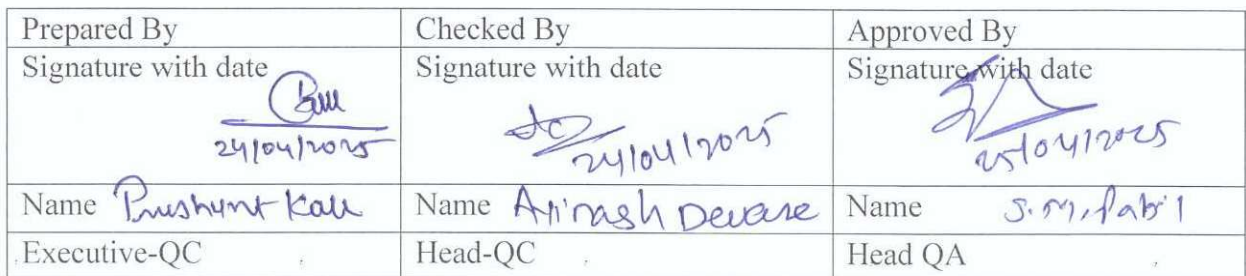 Prepared By Checked By Approved By
Signature with date Signature with date Signature with date
24/04/2025 24/04/2025 25/04/2025
Name Prashant Kale Name Avinash Deware Name S.M. Patil
Executive-QC Head-QC Head QA